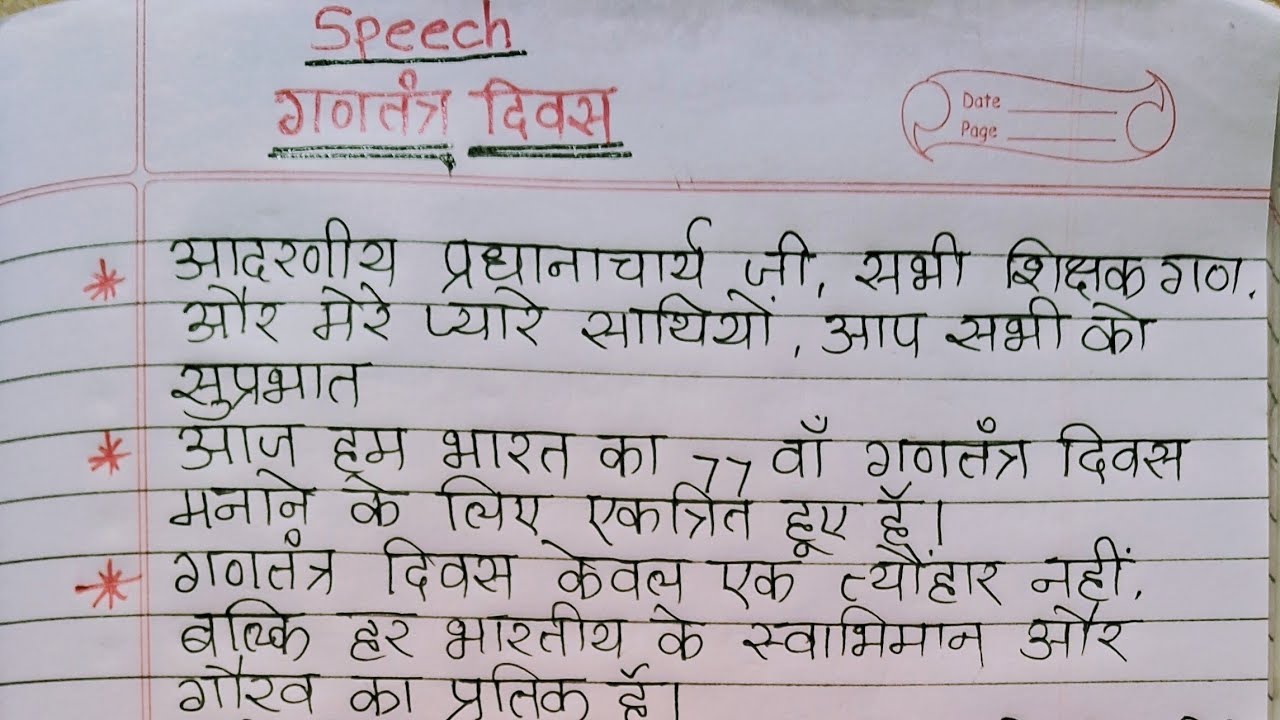 Speech
गणतंत्र दिवस
Date
Page
आदरणीय प्रधानाचार्य जी, सभी शिक्षक गण,
और मेरे प्यारे साथियों, आप सभी को
सुप्रभात
आज हम भारत का 77 वाँ गणतंत्र दिवस
मनाने के लिए एकत्रित हूए हैं।
गणतंत्र दिवस केवल एक त्यौंहार नहीं,
बल्कि हर भारतीय के स्वाभिमान और
गौरव का प्रतिक हैं।